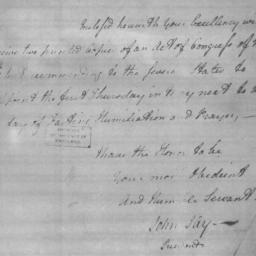 Inclosed herewith Your Excellency wi
two printed Copies of an Act of Congress of t
recommending to the several States to
the first Thursday in May next to
day of Fasting Humiliation and Prayer —
I have the Honor to be
Your most Obedient
And Humble Servant
John Jay —
Presidt